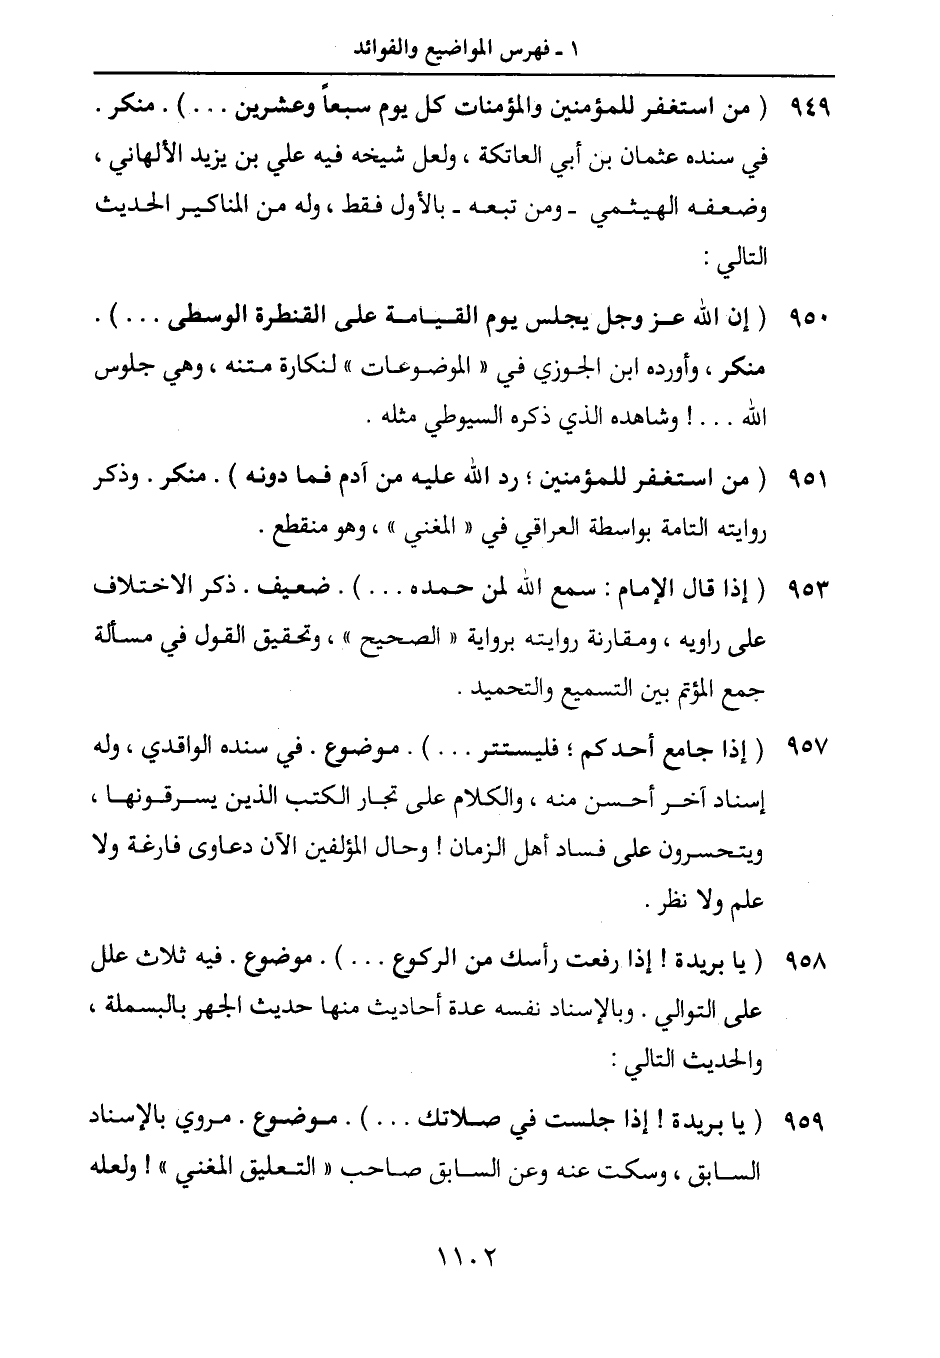 ١ ـ فهرس المواضيع والفوائد
٩٤٩ ( من استغفر للمؤمنين والمؤمنات كل يوم سبعاً وعشرين . . . ) . منكر .
في سنده عثمان بن أبي العاتكة ، ولعل شيخه فيه علي بن يزيد الألهاني ،
وضعفه الهيثمي ـ ومن تبعه ـ بالأول فقط ، وله من المناكير الحديث
التالي :
٩٥٠ ( إن الله عز وجل يجلس يوم القيامة على القنطرة الوسطى . . . ) .
منكر ، وأورده ابن الجوزي في « الموضوعات » لنكارة متنه ، وهي جلوس
الله . . . ! وشاهده الذي ذكره السيوطي مثله .
٩٥١ ( من استغفر للمؤمنين ؛ رد الله عليه من آدم فما دونه ) . منكر . وذكر
روايته التامة بواسطة العراقي في « المغني » ، وهو منقطع .
٩٥٣ ( إذا قال الإمام : سمع الله لمن حمده . . . ) . ضعيف . ذكر الاختلاف
على راويه ، ومقارنة روايته برواية « الصحيح » ، وتحقيق القول في مسألة
جمع المؤتم بين التسميع والتحميد .
٩٥٧ ( إذا جامع أحدكم ؛ فليستتر . . . ) . موضوع . في سنده الواقدي ، وله
إسناد آخر أحسن منه ، والكلام على تجار الكتب الذين يسرقونها ،
ويتحسرون على فساد أهل الزمان ! وحال المؤلفين الآن دعاوى فارغة ولا
علم ولا نظر .
٩٥٨ ( يا بريدة ! إذا رفعت رأسك من الركوع . . . ) . موضوع . فيه ثلاث علل
على التوالي . وبالإسناد نفسه عدة أحاديث منها حديث الجهر بالبسملة ،
والحديث التالي :
٩٥٩ ( يا بريدة ! إذا جلست في صلاتك . . . ) . موضوع . مروي بالإسناد
السابق ، وسكت عنه وعن السابق صاحب « التعليق المغني » ! ولعله
١١٠٢